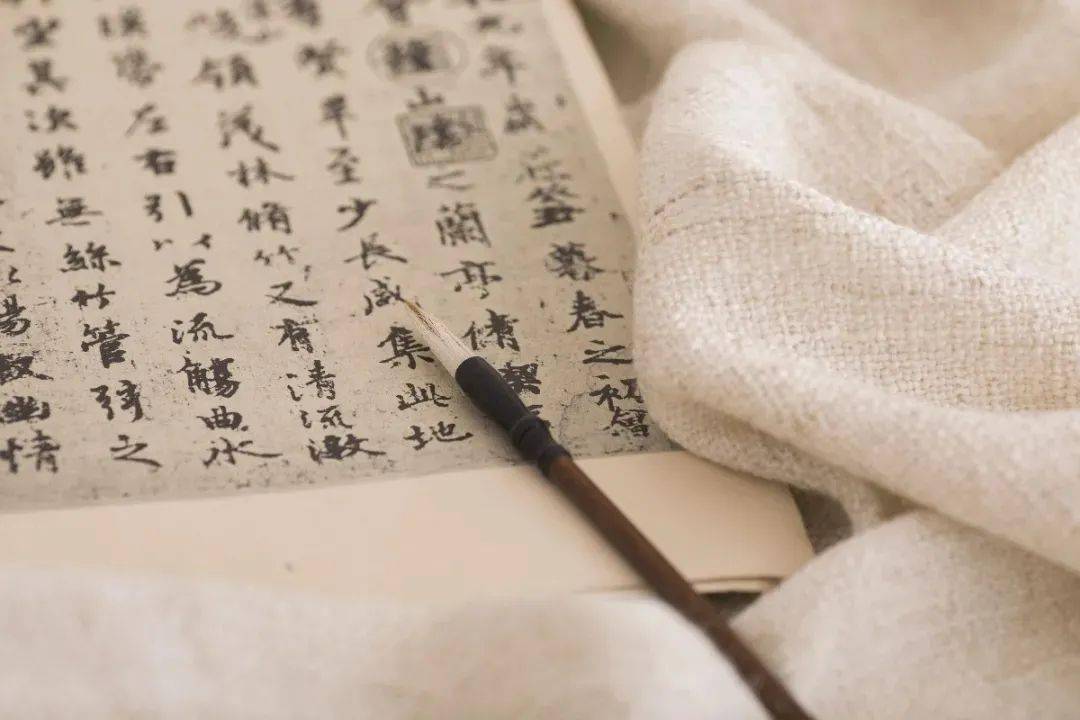 九年歲在癸丑暮春之初會
稽山陰之蘭亭脩禊
羣賢畢至少長咸集此地
峻領茂林脩竹又有清流激
暎帶左右引以為流觴曲水
坐其次雖無絲竹管弦之
暢敘幽情